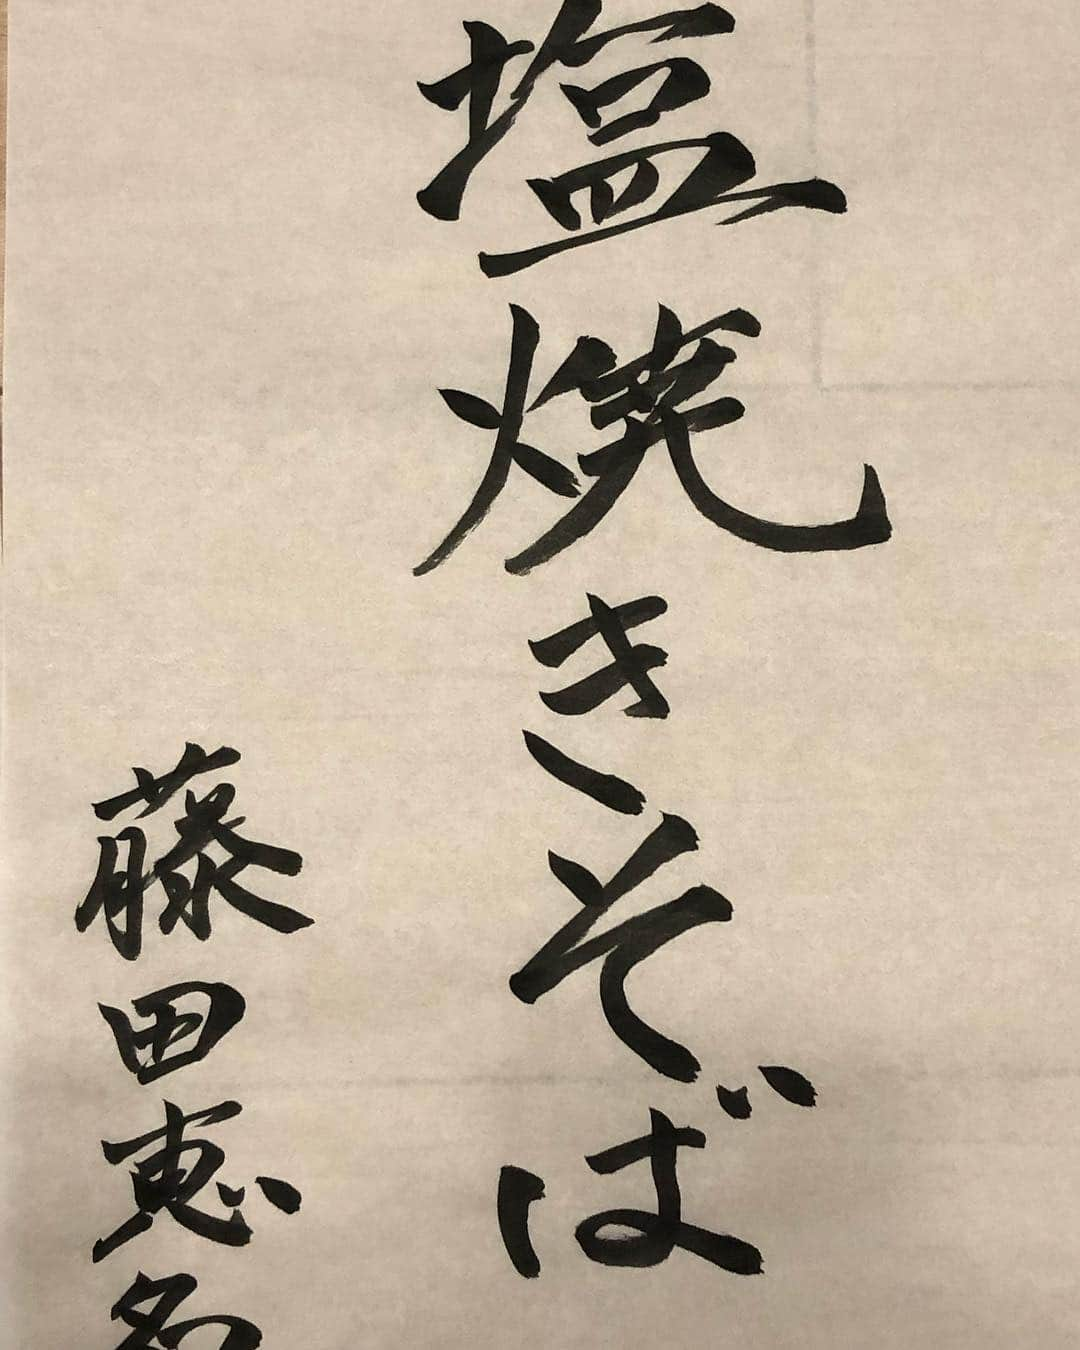 塩焼きそば
藤田恵名